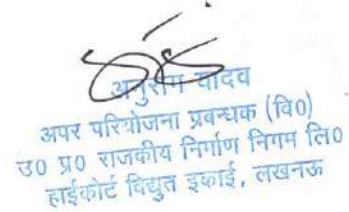 अनुराग यादव
अपर परियोजना प्रबन्धक (वि०)
उ० प्र० राजकीय निर्माण निगम लि०
हाईकोर्ट विद्युत इकाई, लखनऊ